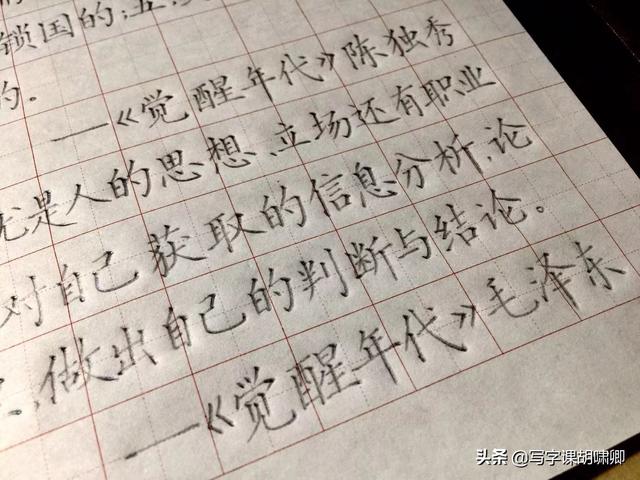 锁国的;五、
的。
——《觉醒年代》陈独秀
是人的思想、立场还有职业
对自己获取的信息分析、论
、做出自己的判断与结论。
——《觉醒年代》毛泽东
头条@写字课胡啸卿